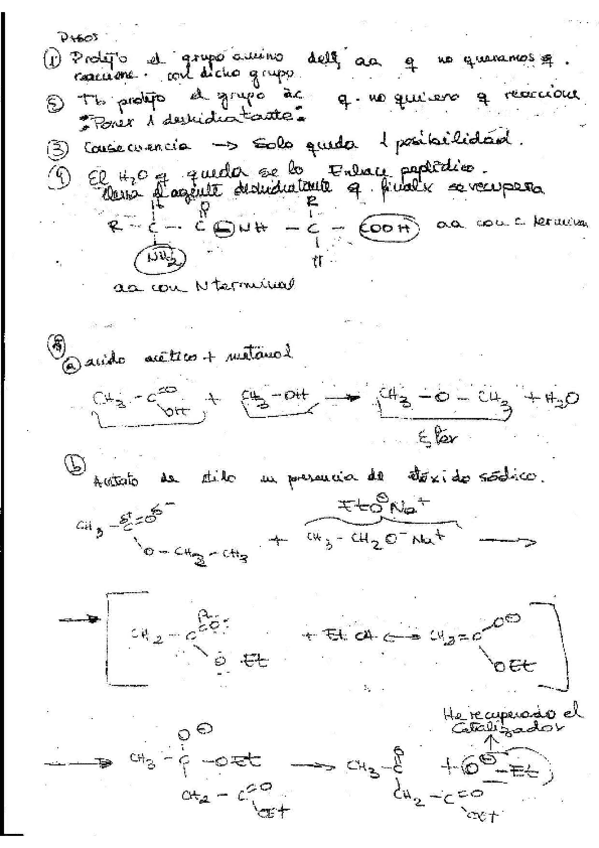 Pasos
① Protejo el grupo amino del aa q no queramos q.
reaccione. con dicho grupo
② Tb protejo el grupo ác q. no quiero q reaccione
"Poner 1 deshidratante"
③ Consecuencia → Solo queda 1 posibilidad.
④ El H2O q queda se lo Enlace peptídico.
el agente deshidratante q. finalx se recupera
H O R
R - C - C - NH - C - COOH aa con C terminal
NH2 H
aa con N terminal
ⓐ acido acético + metanol
CH3 - C=O OH + CH3 - OH → CH3 - O - CH3 + H2O
Ester
ⓑ Acetato de etilo en presencia de etóxido sódico.
EtO⊖ Na+
CH3 - C=O O - CH2 - CH3 + CH3 - CH2 O- Na+ →
→ CH2 - C=O OEt + Et OH ↔ CH2 = C O⊖ OEt
He recuperado el
Catalizador
→ CH3 - C - OEt → CH3 - C + O⊖ - Et
O⊖ O
CH2 - C=O CH2 - C=O
OEt OEt